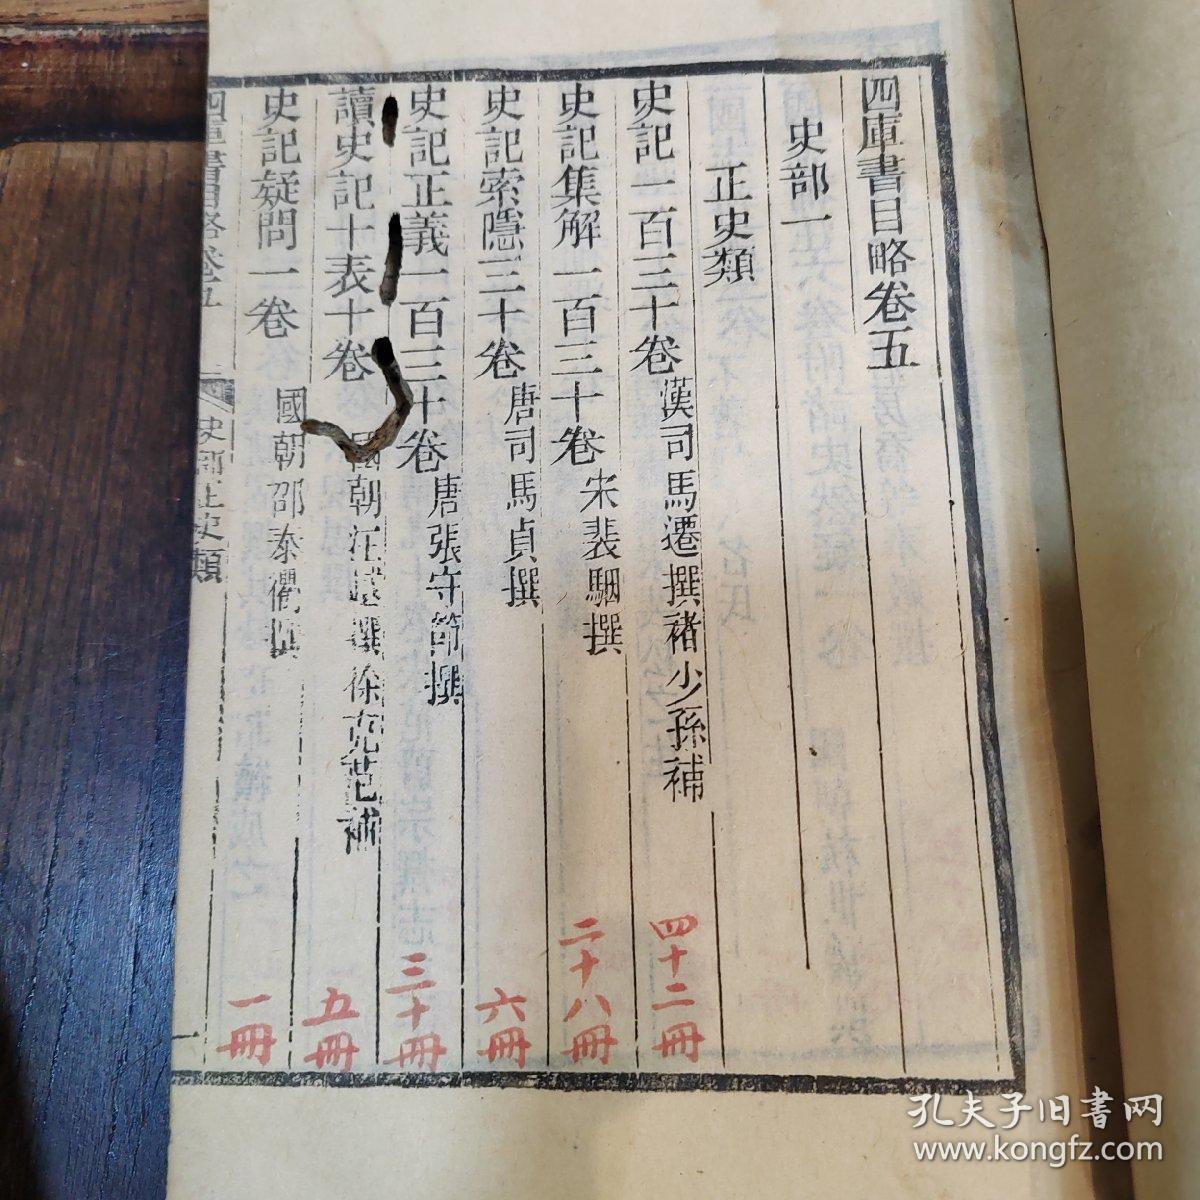 四庫書目略卷五
史部一
正史類
史記一百三十卷 漢司馬遷撰褚少孫補 四十二冊
史記集解一百三十卷 宋裴駰撰 二十八冊
史記索隱三十卷 唐司馬貞撰 六冊
史記正義一百三十卷 唐張守節撰 三十冊
讀史記十表十卷 國朝汪越撰徐克范補 五冊
史記疑問一卷 國朝邵泰衢撰 一冊
四庫書目略卷五 史部正史類 一
孔夫子旧书网
www.kongfz.com